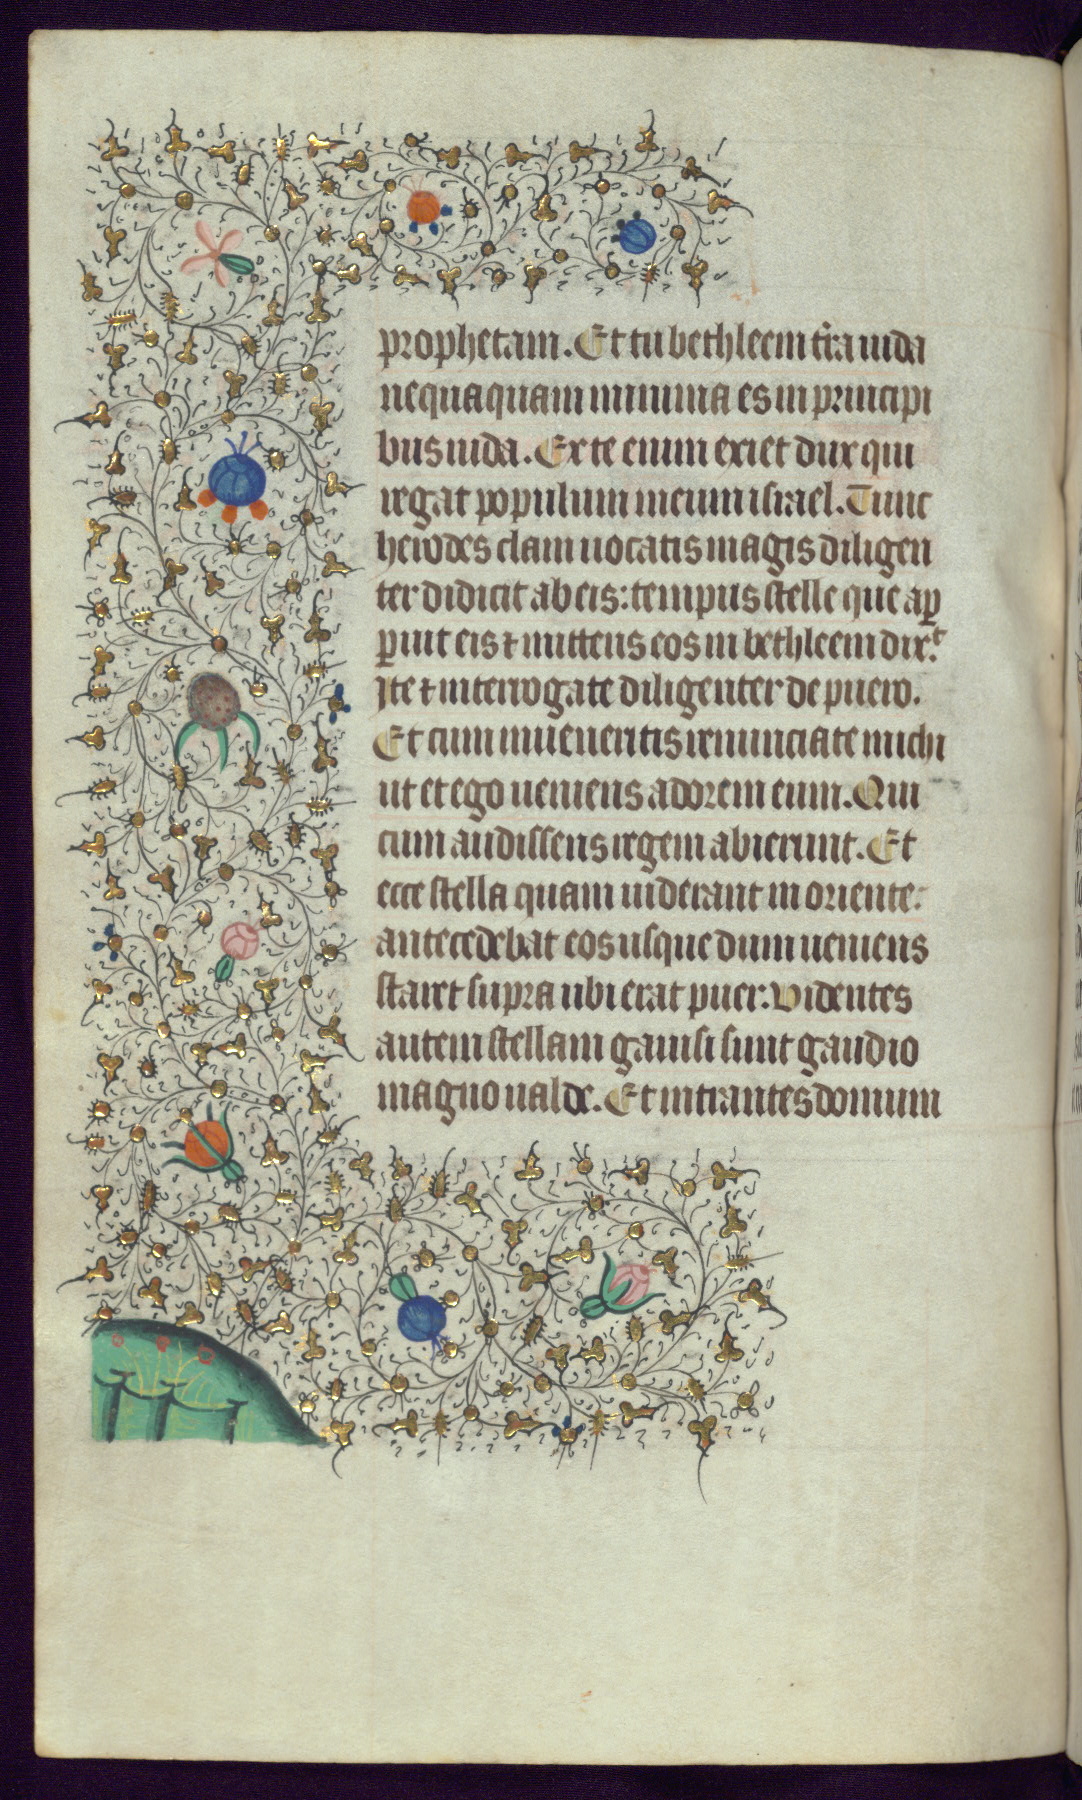 prophetam. Et tu bethleem tr̃a iuda
nequaquam minima es in principi
bus iuda. Ex te enim exiet dux qui
regat populum meum israel. Tunc
herodes clam uocatis magis diligen
ter didicit ab eis: tempus stelle que ap̲
p̲uit eis ⁊ mittens eos in bethleem dix.ͭ
Ite ⁊ interrogate diligenter de puero.
Et cum inueneritis renunciate michi
ut et ego ueniens adorem eum. Qui
cum audissens regem abierunt. Et
ecce stella quam uiderant in oriente:
antecedebat eos usque dum ueniens
staret supra ubi erat puer: videntes
autem stellam gauisi sunt gaudio
magno ualde. Et intrantes domum